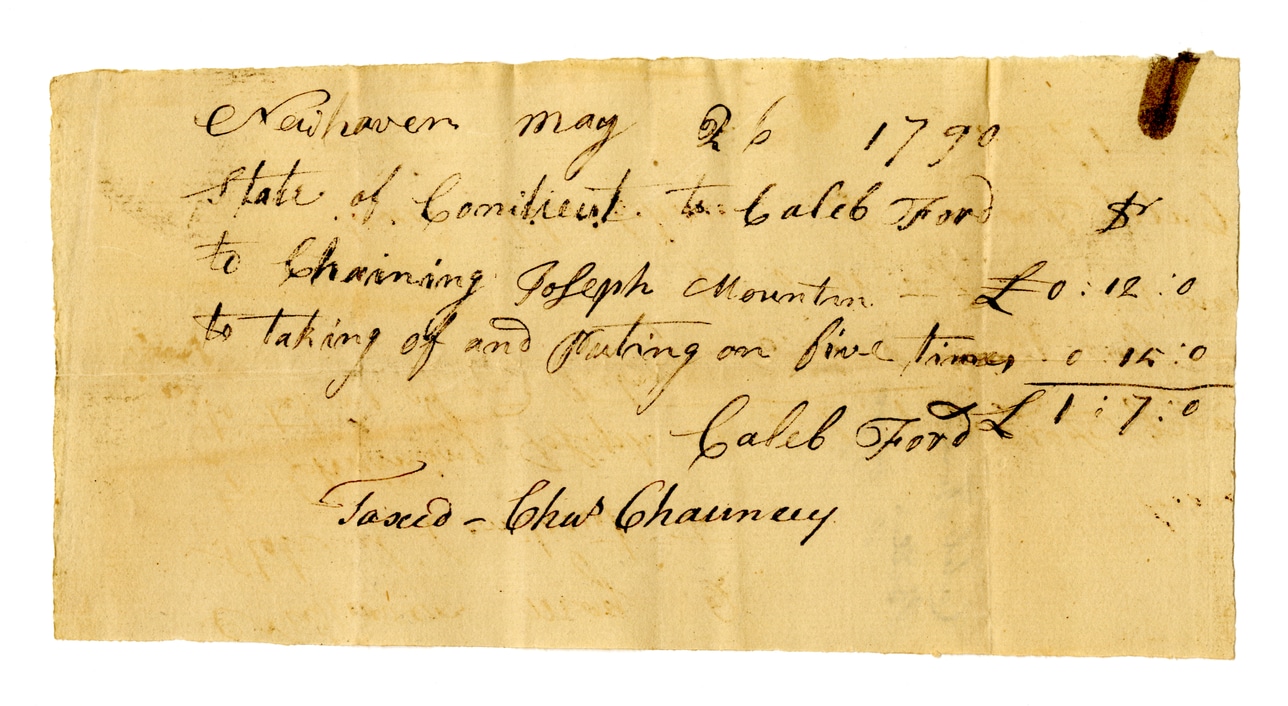 Newhaven may 26 1790
State of Coniticut to Caleb Ford Dr
to Chaining Joseph Mountin — £0:12:0
to taking of and Puting on five times 0 15:0
Caleb Ford £1:7:0
Taxed – Chas Chauncey